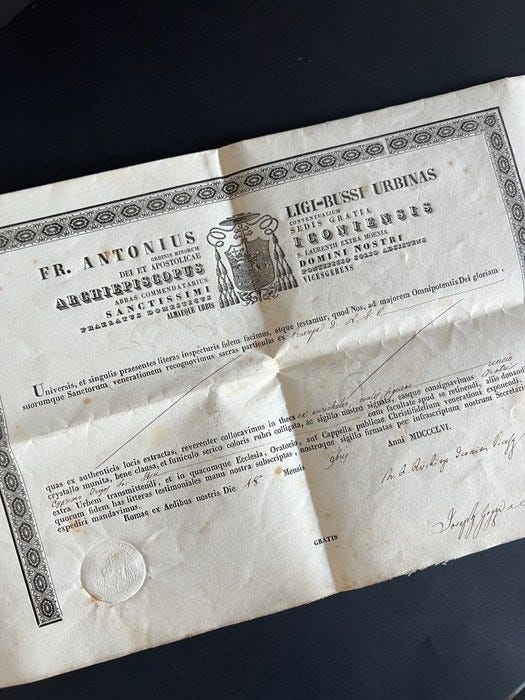 FR. ANTONIUS LIGI-BUSSI URBINAS
ORDINIS MINORUM CONVENTUALIUM
DEI ET APOSTOLICAE SEDIS GRATIA
ARCHIEPISCOPUS ICONIENSIS
ABBAS COMMENDATARIUS S. LAURENTII EXTRA MOENIA
SANCTISSIMI DOMINI NOSTRI
PRAELATUS DOMESTICUS PONTIFICIO SOLIO ADSISTENS
ALMAEQUE URBIS VICESGERENS
Universis, et singulis praesentes literas inspecturis fidem facimus, atque testamur, quod Nos, ad majorem Omnipotentis Dei gloriam,
suorumque Sanctorum venerationem recognovimus sacras particulas ex
quas ex authenticis locis extractas, reverenter collocavimus in theca ex
crystallo munita, bene clausa, et funiculo serico coloris rubri colligata, ac sigillo nostro signata, easque consignavimus
cum facultate apud se retinendi, aliis donandi
extra Urbem transmittendi, et in quacumque Ecclesia, Oratorio, aut Cappella publicae Christifidelium venerationi exponendi
quorum fidem has litteras testimoniales manu nostra subscriptas, nostroque sigillo firmatas per infrascriptum nostrum Secretar
expediri mandavimus.
Romae ex Aedibus nostris Die 18 Mensis 9bris Anni MDCCCLVI.
GRATIS